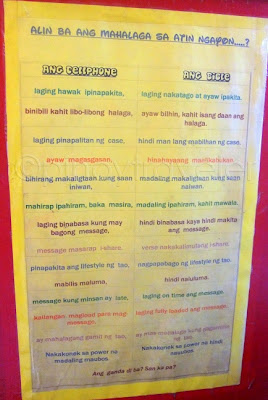 ALIN BA ANG MAHALAGA SA ATIN NGAYON.....?
ANG CELLPHONE
ANG BIBLE
laging hawak ipinapakita,
laging nakatago at ayaw ipakita.
binibili kahit libo-libong halaga,
ayaw bilhin, kahit isang daan ang
halaga.
laging pinapalitan ng case,
hindi man lang mabilhan ng case.
ayaw magasgasan,
hinahayaang
bihirang makaligtaan kung saan
iniwan,
madaling makaligtaan kung saan
naiwan.
mahirap ipahiram, baka masira,
madaling ipahiram, kahit mawala.
laging binabasa kung may
bagong message,
hindi binabasa kaya hindi makita
ang message.
message masarap i-share,
verse nakakalimutang i-share.
pinapakita ang lifestyle ng tao,
nagpapabago ng lifestyle ng tao,
mabilis maluma,
hindi naluluma.
message kung minsan ay late,
laging on time ang message.
kailangan magload para may
message,
laging fully loaded ang message.
ay mahalagang gamit ng tao,
ay mas mahalaga kung
ng tao.
Nakakonek sa power na
madaling maubos.
Nakakonek sa power na hindi
nauubos.
Ang ganda di ba?